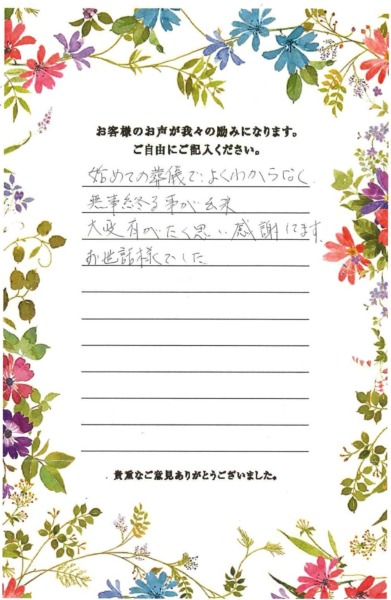 お客様のお声が我々の励みになります。
ご自由にご記入ください。
始めての葬儀でよくわからなく
無事終る事が出来
大変有がたく思い感謝してます
お世話様でした
貴重なご意見ありがとうございました。